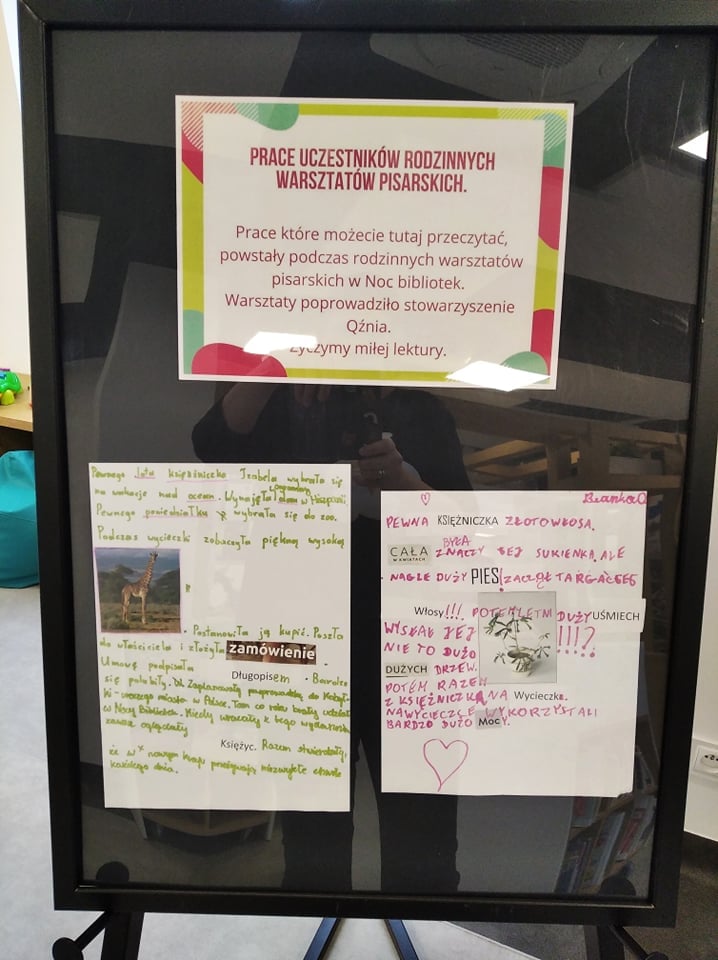 PRACE UCZESTNIKÓW RODZINNYCH
WARSZTATÓW PISARSKICH.
Prace które możecie tutaj przeczytać,
powstały podczas rodzinnych warsztatów
pisarskich w Noc bibliotek.
Warsztaty poprowadziło stowarzyszenie
Qźnia.
Życzymy miłej lektury.
Pewnego lata księżniczka Izabela wybrała się
na wakacje nad ocean. Wynajęła ogromny dom w Hiszpanii.
Pewnego poniedziałku wybrała się do zoo.
Podczas wycieczki zobaczyła piękną wysoką
. Postanowiła ją kupić. Poszła
do właściciela i złożyła zamówienie
Umowę podpisała Długopisem. Bardzo
się polubiły. Zaplanowały
miasto w Polsce. Tam co roku
w Nocy Bibliotek. Kiedy wracały z tego wydarzenia
zawsze oglądały
Księżyc. Razem stwierdziły,
że w nowym kraju przeżywają niezwykłe chwile
każdego dnia.
Bianka
PEWNA KSIĘŻNICZKA ZŁOTOWŁOSA.
CAŁA W KWIATACH BYŁA
ZNACZY JEJ SUKIENKA, ALE
NAGLE DUŻY PIES ZACZĄŁ TARGAĆ JEJ
Włosy!!! POTEM LETNI DUŻY UŚMIECH
WYSŁAŁ JEJ !!!?
NIE TO DUŻO
DUŻYCH DRZEW.
POTEM RAZEM
Z KSIĘŻNICZKĄ NA Wycieczkę.
NA WYCIECZCE WYKORZYSTALI
BARDZO DUŻO Mocy.